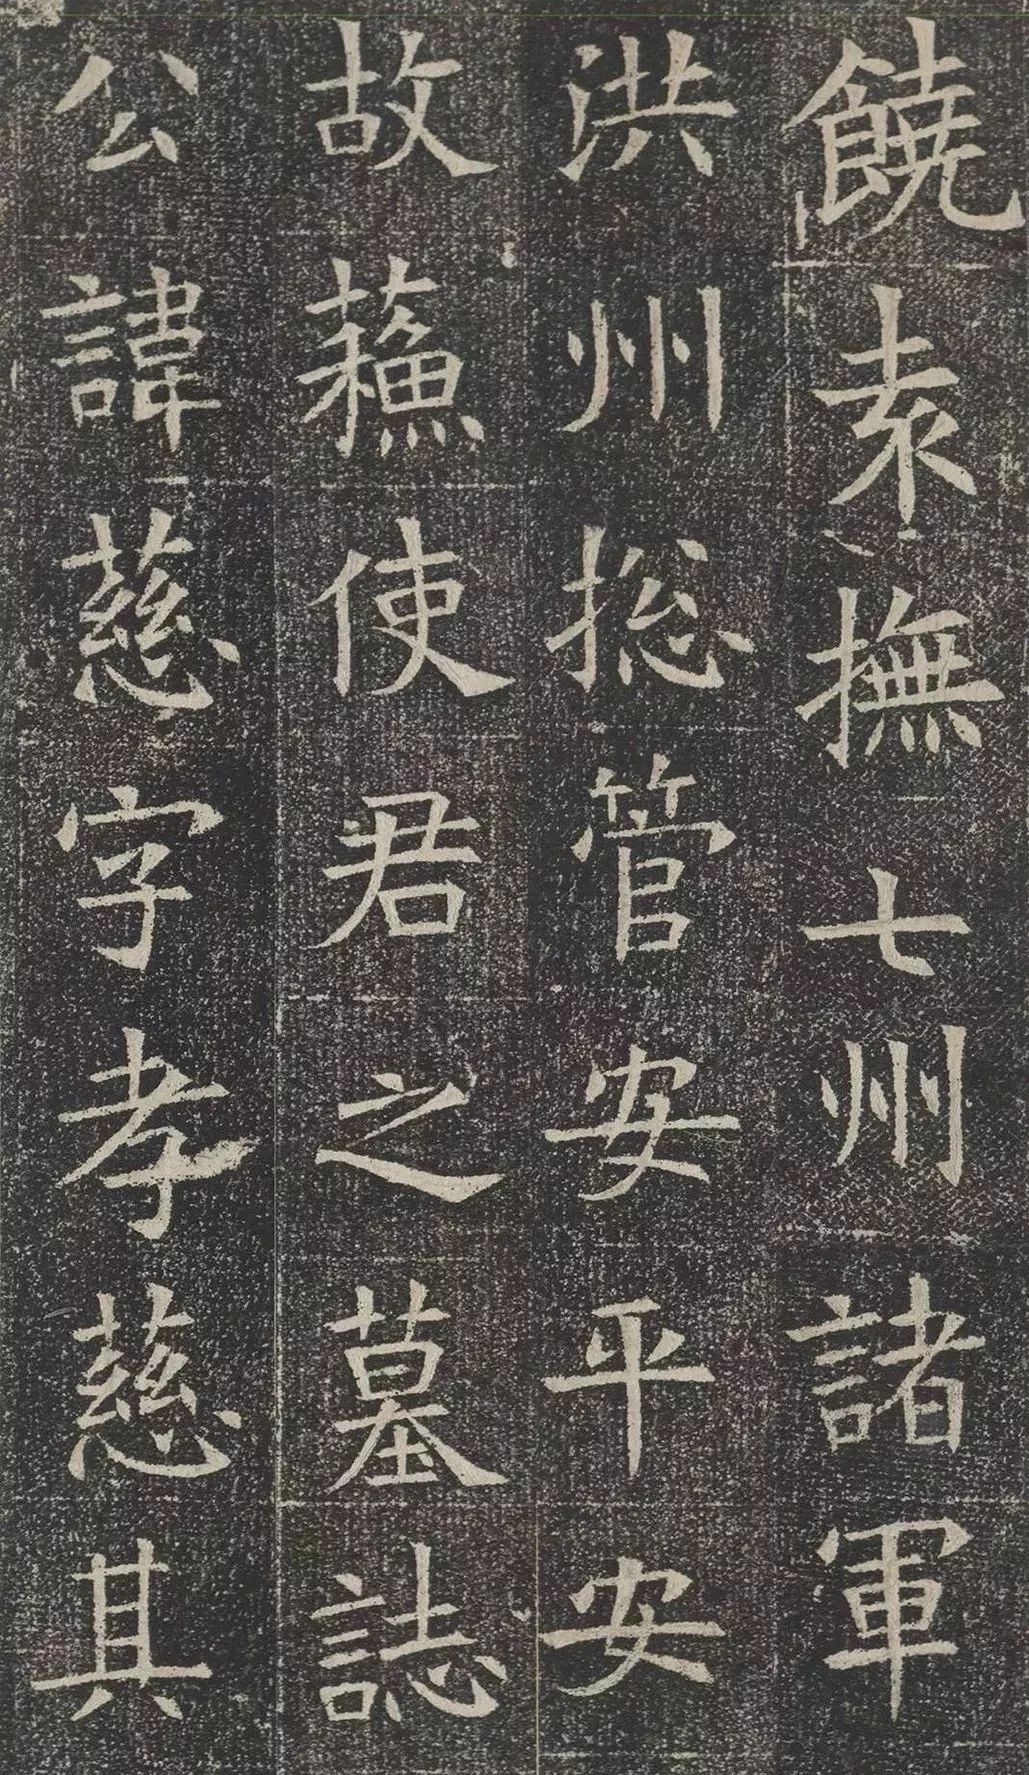 饒袁撫七州諸軍
洪州捴管安平安
故蘓使君之墓誌
公諱慈字孝慈其